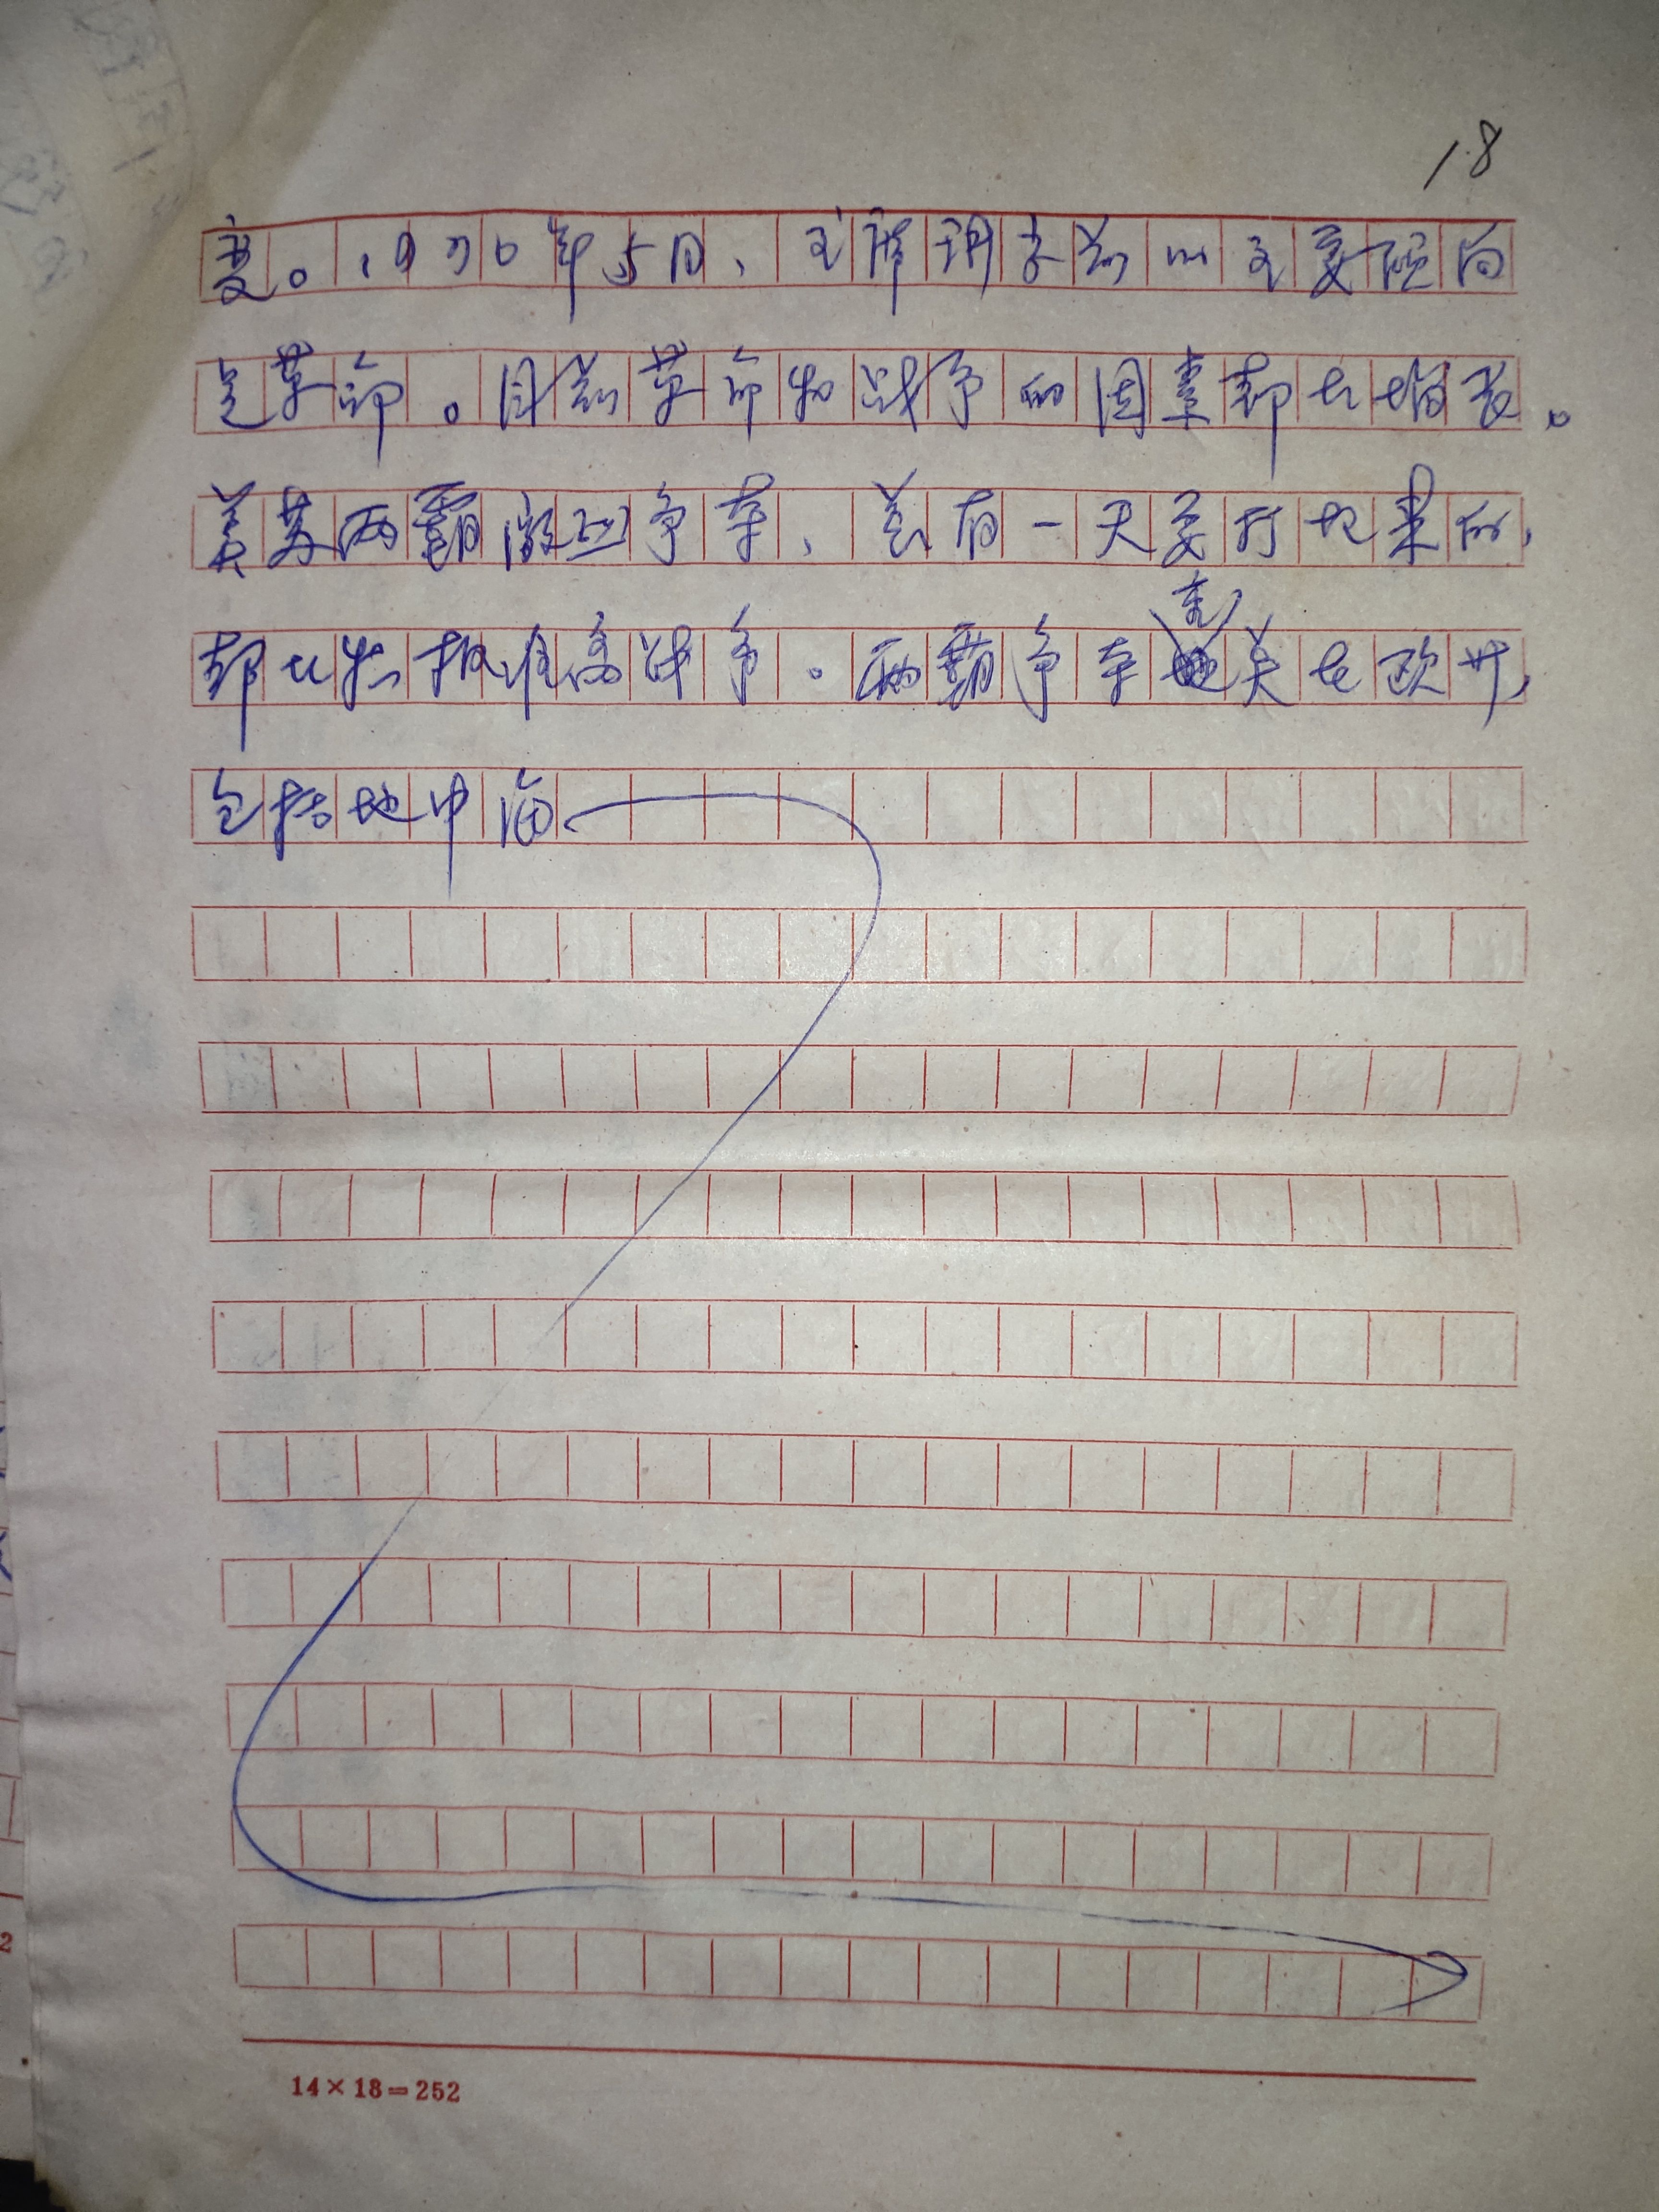 18
变。1970年5月、主席讲当前的主要倾向
是革命。目前革命和战争的因素都在增长。
美苏两霸激烈争夺、总有一天要打起来的,
都在准备战争。两霸争夺重点在欧州,
包括地中海
14×18=252